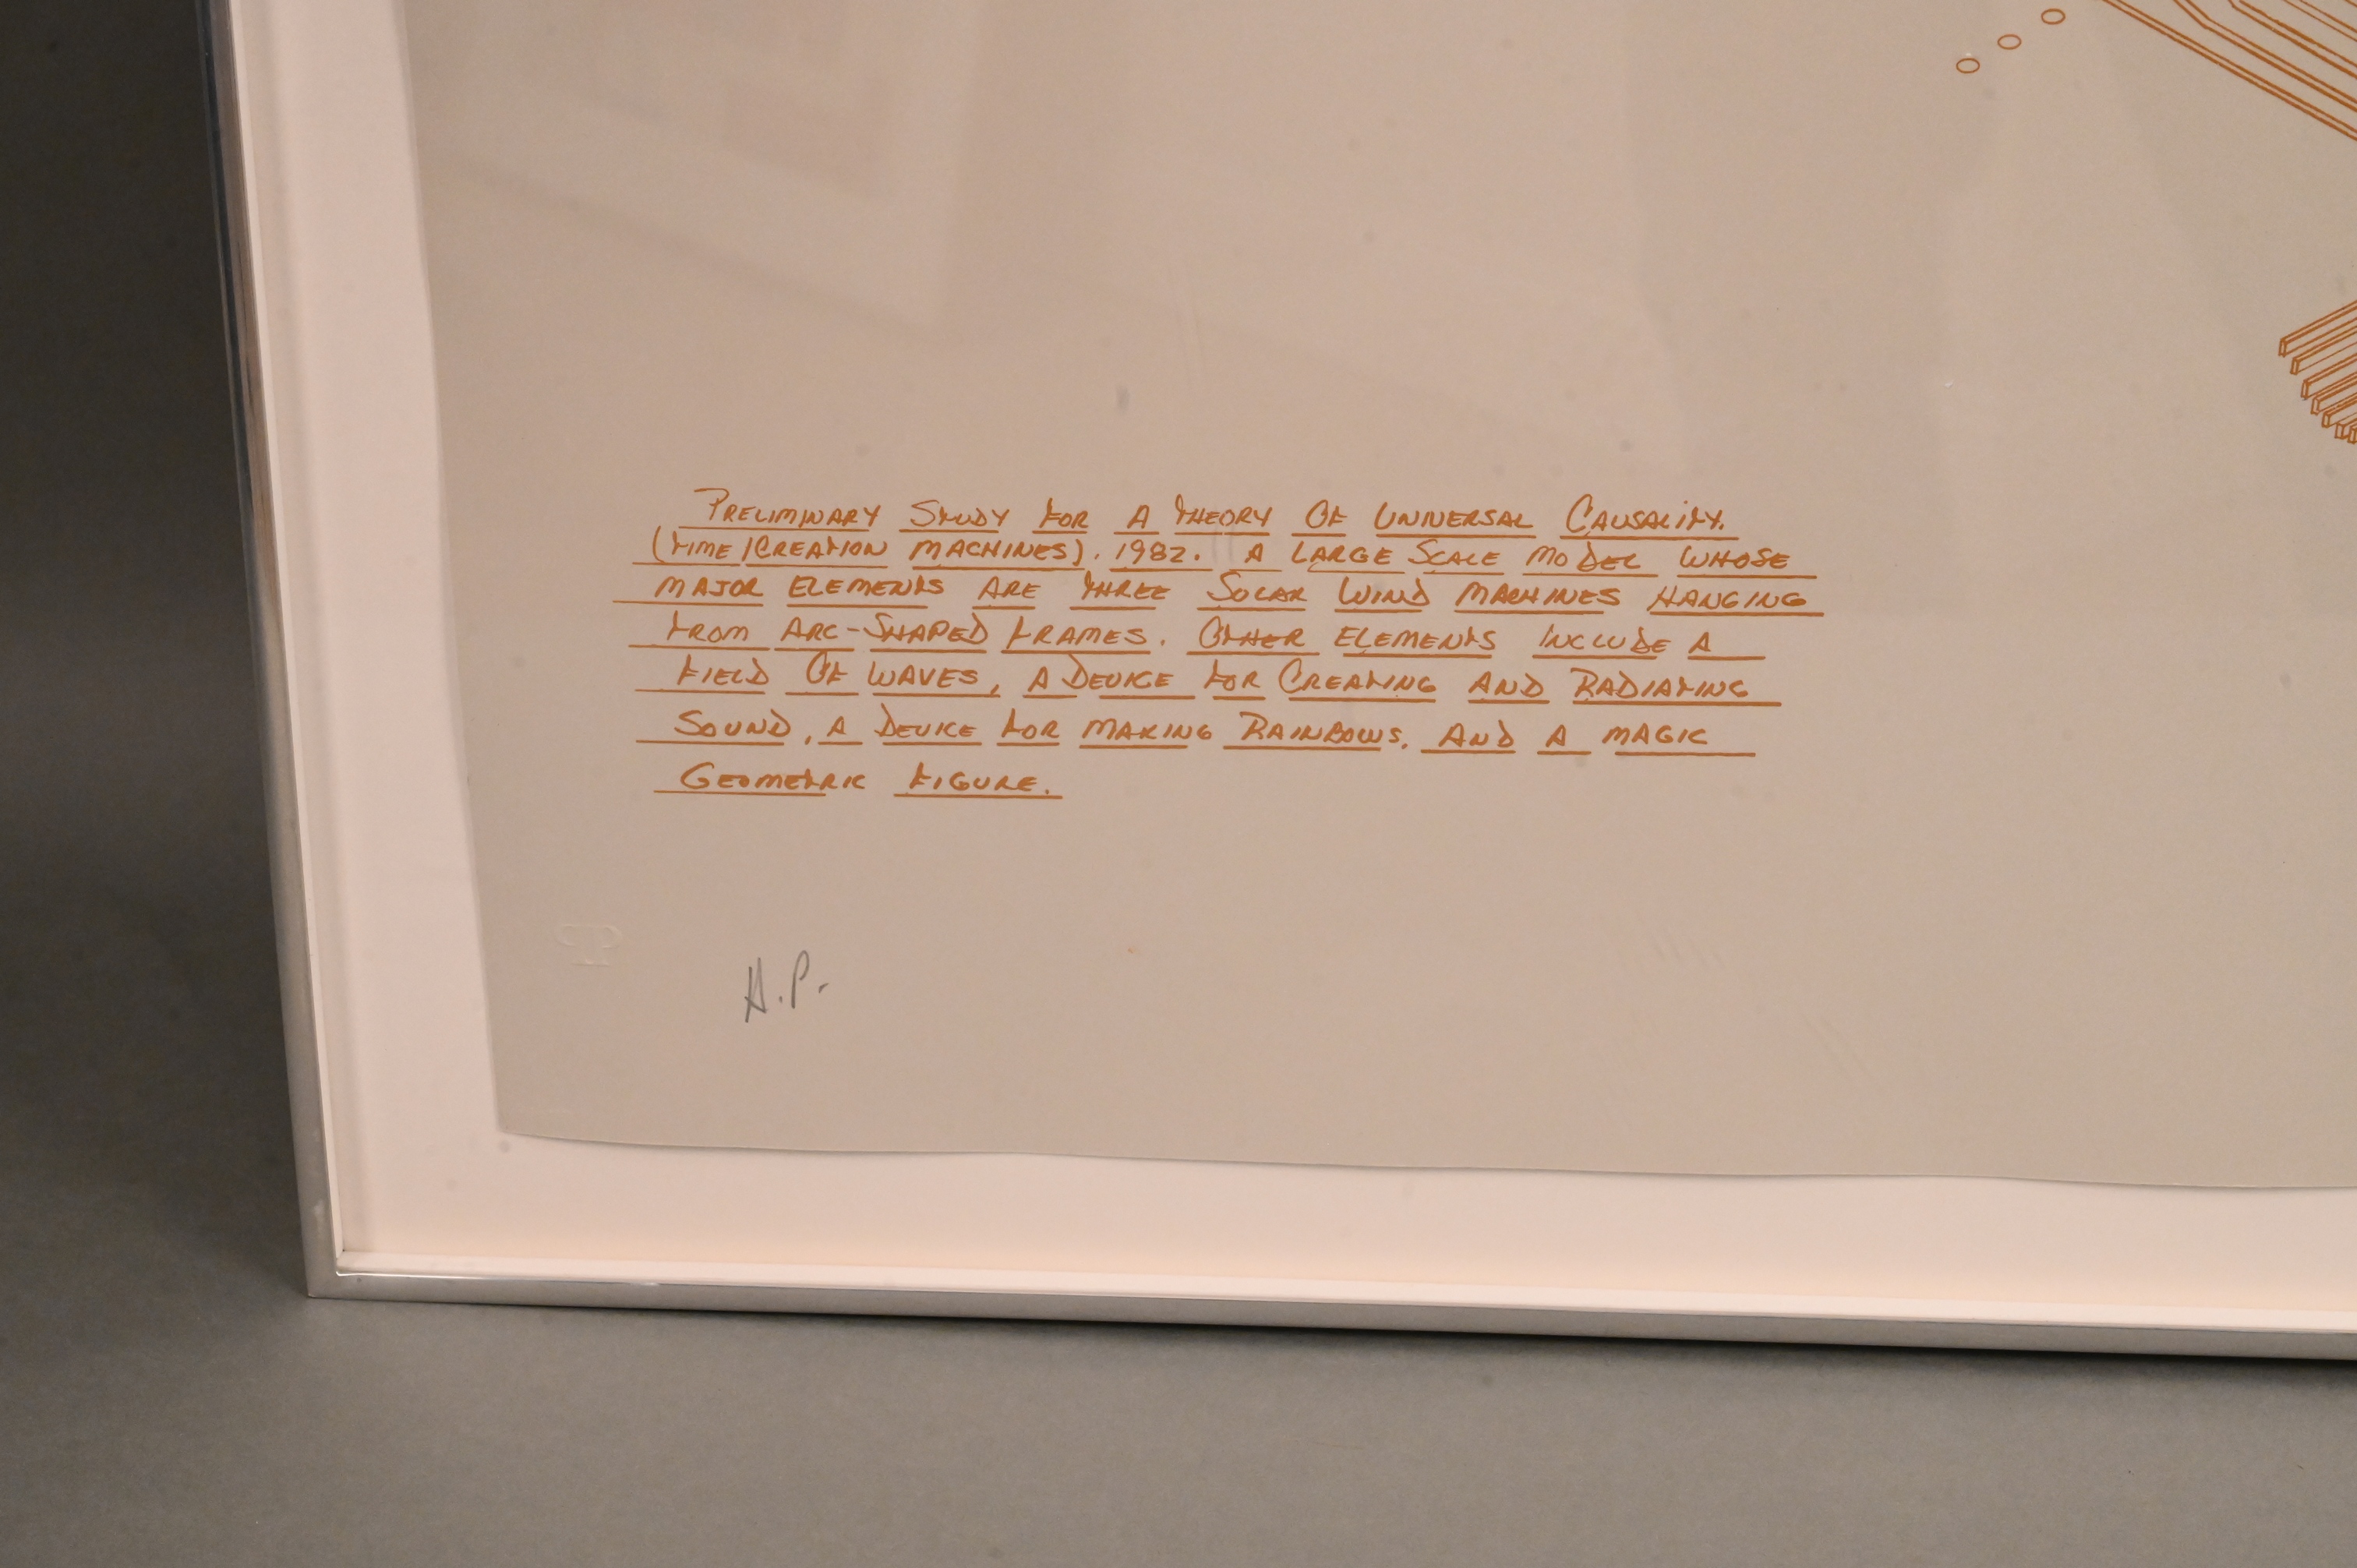 PRELIMINARY STUDY FOR A THEORY OF UNIVERSAL CAUSALITY.
(TIME/CREATION MACHINES). 1982. A LARGE SCALE MODEL WHOSE
MAJOR ELEMENTS ARE THREE SOLAR WIND MACHINES HANGING
FROM ARC-SHAPED FRAMES. OTHER ELEMENTS INCLUDE A
FIELD OF WAVES, A DEVICE FOR CREATING AND RADIATING
SOUND, A DEVICE FOR MAKING RAINBOWS, AND A MAGIC
GEOMETRIC FIGURE.
A.P.